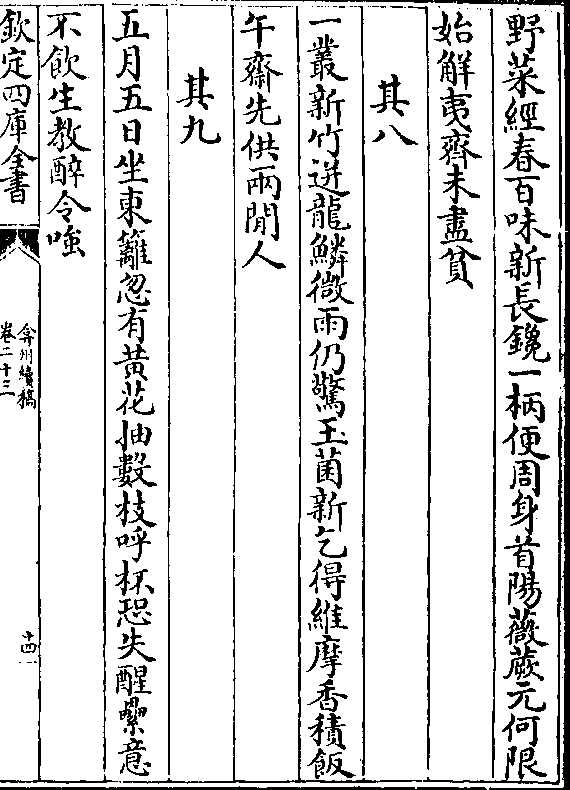 野菜經春百味新長鑱一柄便周身首陽薇蕨元何限
始解夷齊未盡貧
其八
一叢新竹迸龍鱗微雨仍驚玉菌新乞得維摩香積飯
午齋先供兩閒人
其九
五月五日坐東籬忽有黃花抽數枝呼杯恐失醒纍意
不飲生教醉令嗤
欽定四庫全書
弇州續稿
卷二十三
十四